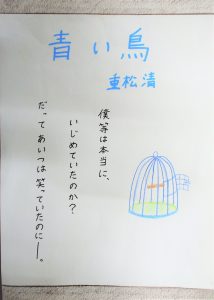 青い鳥
重松清
僕等は本当に、
いじめていたのか?
だってあいつは笑っていたのに――。